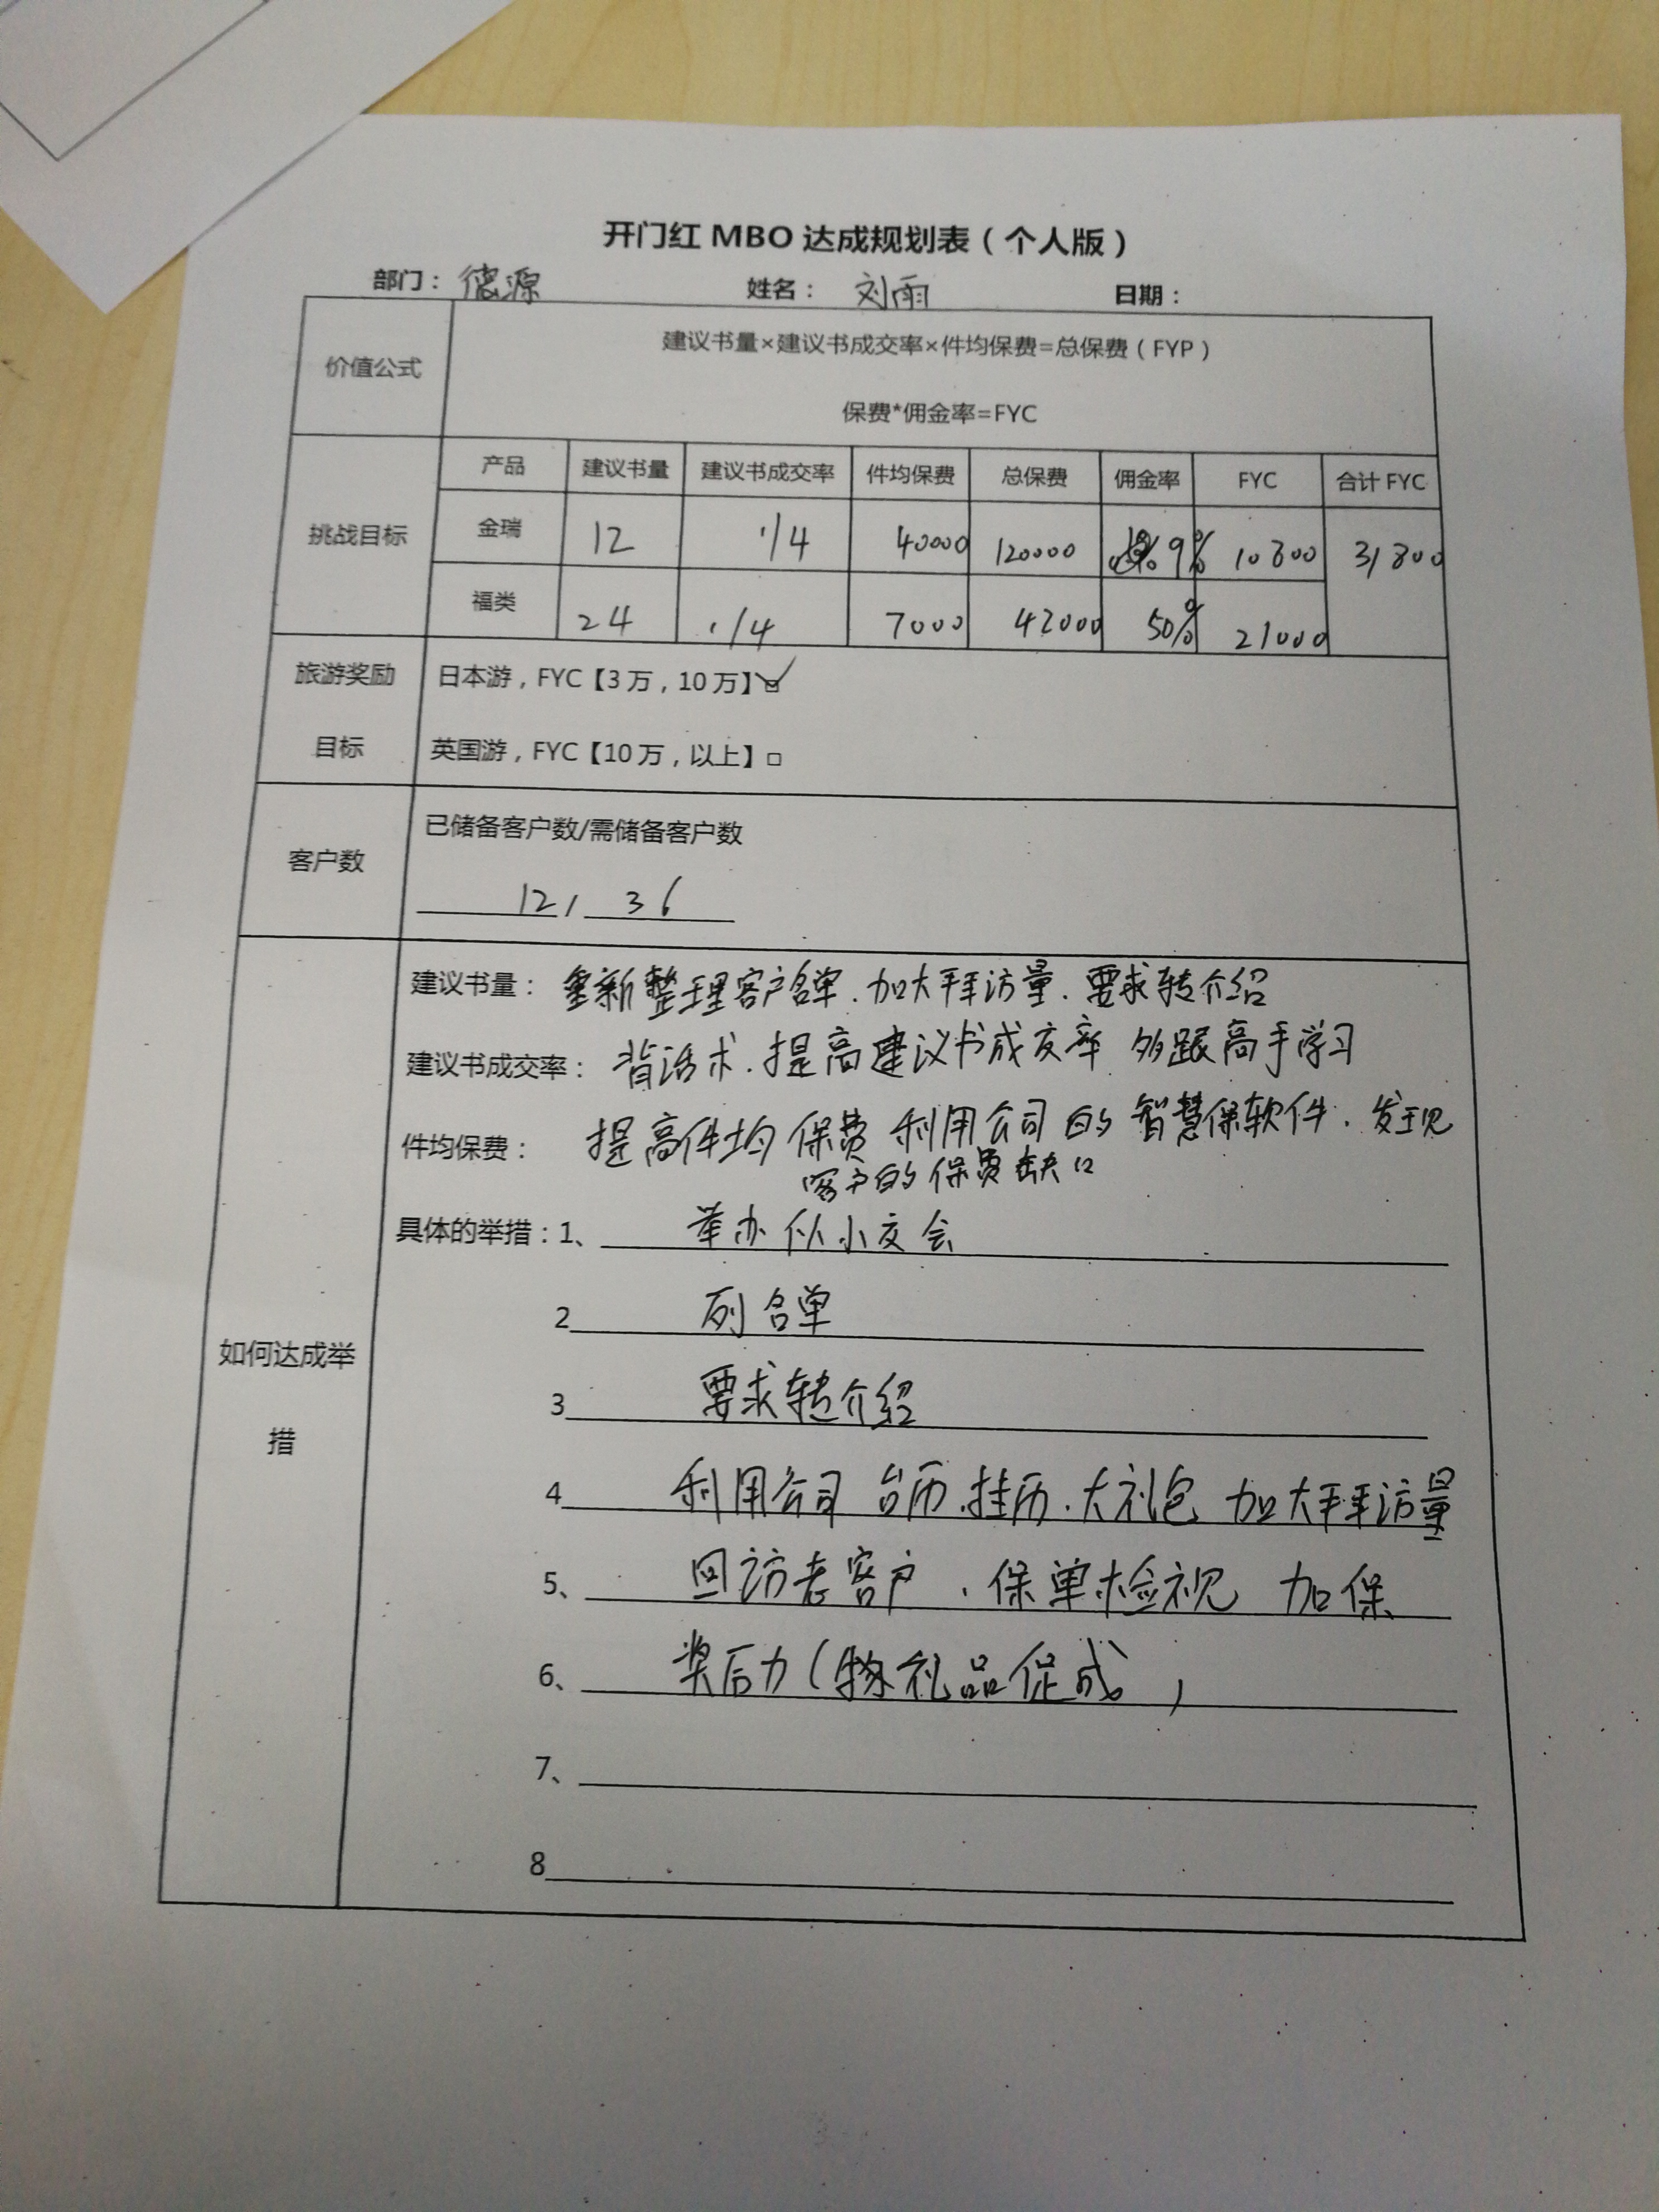 开门红 MBO 达成规划表（个人版）
部门： 德源 姓名： 刘雨 日期：
价值公式
建议书量×建议书成交率×件均保费=总保费（FYP）
保费*佣金率=FYC
挑战目标
产品 建议书量 建议书成交率 件均保费 总保费 佣金率 FYC 合计 FYC
金瑞 12 1/4 40000 120000 9% 10800 31800
福类 24 1/4 7000 42000 50% 21000
旅游奖励
目标
日本游，FYC【3万，10万】☑
英国游，FYC【10万，以上】□
客户数
已储备客户数/需储备客户数
12 / 36
如何达成举
措
建议书量： 重新整理客户名单.加大拜访量.要求转介绍
建议书成交率： 背话术.提高建议书成交率 多跟高手学习
件均保费： 提高件均保费 利用公司的智慧保软件.发现
客户的保费缺口
具体的举措：1、 举办 小交会
2 列名单
3 要求转介绍
4 利用公司 台历.挂历.大礼包 加大拜访量
5、 回访老客户.保单检视 加保
6、 奖后力（物礼品促成）
7、
8